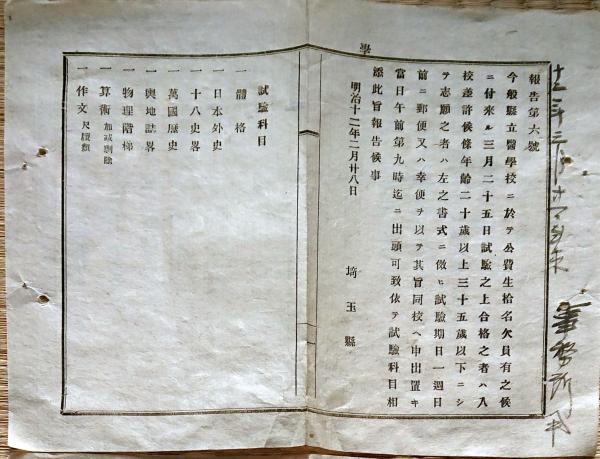 報告第六號
今般縣立醫學校ニ於テ公費生拾名欠員有之候
ニ付來ル三月二十五日試驗之上合格之者ハ入
校差許候條年齡二十歲以上三十五歲以下ニシ
テ志願之者ハ左之書式ニ倣ヒ試驗期日一週日
前ニ郵便又ハ幸便ヲ以テ其旨同校ヘ申出置キ
當日午前第九時迄ニ出頭可致依テ試驗科目相
添此旨報告候事
明治十二年二月廿八日
埼玉縣
學
試驗科目
一體格
一日本外史
一十八史畧
一萬國歷史
一輿地誌畧
一物理階梯
一算術 加減乘除
一作文 尺牘類
事務所